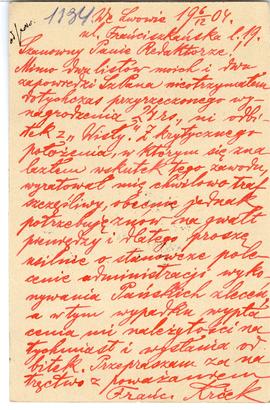 1134. We Lwowie 19 6/12 04.
ul. Franciszkańska l. 19.
Szanowny Panie Redaktorze!
Mimo dwu listów moich i dwu
zapowiedzi Sz. Pana nie otrzymałem
dotychczas przyrzeczonego wy-
nagrodzenia ani odbi-
tek z „Wisły". Z krytycznego
położenia, w którym się zna-
lazłem wskutek tego zawodu,
wyratował mię chwilowo traf
szczęśliwy, obecnie jednak
potrzebuję znów na gwałt
pieniędzy i dlatego proszę
usilnie o stanowcze pole-
cenie administracji wyko-
nywania Pańskich zleceń,
a w tym wypadku wypła-
cenia mi należytości na-
tychmiast i wysłania od-
bitek. Przepraszam za na-
tręctwo z poważaniem
Franc. Krček